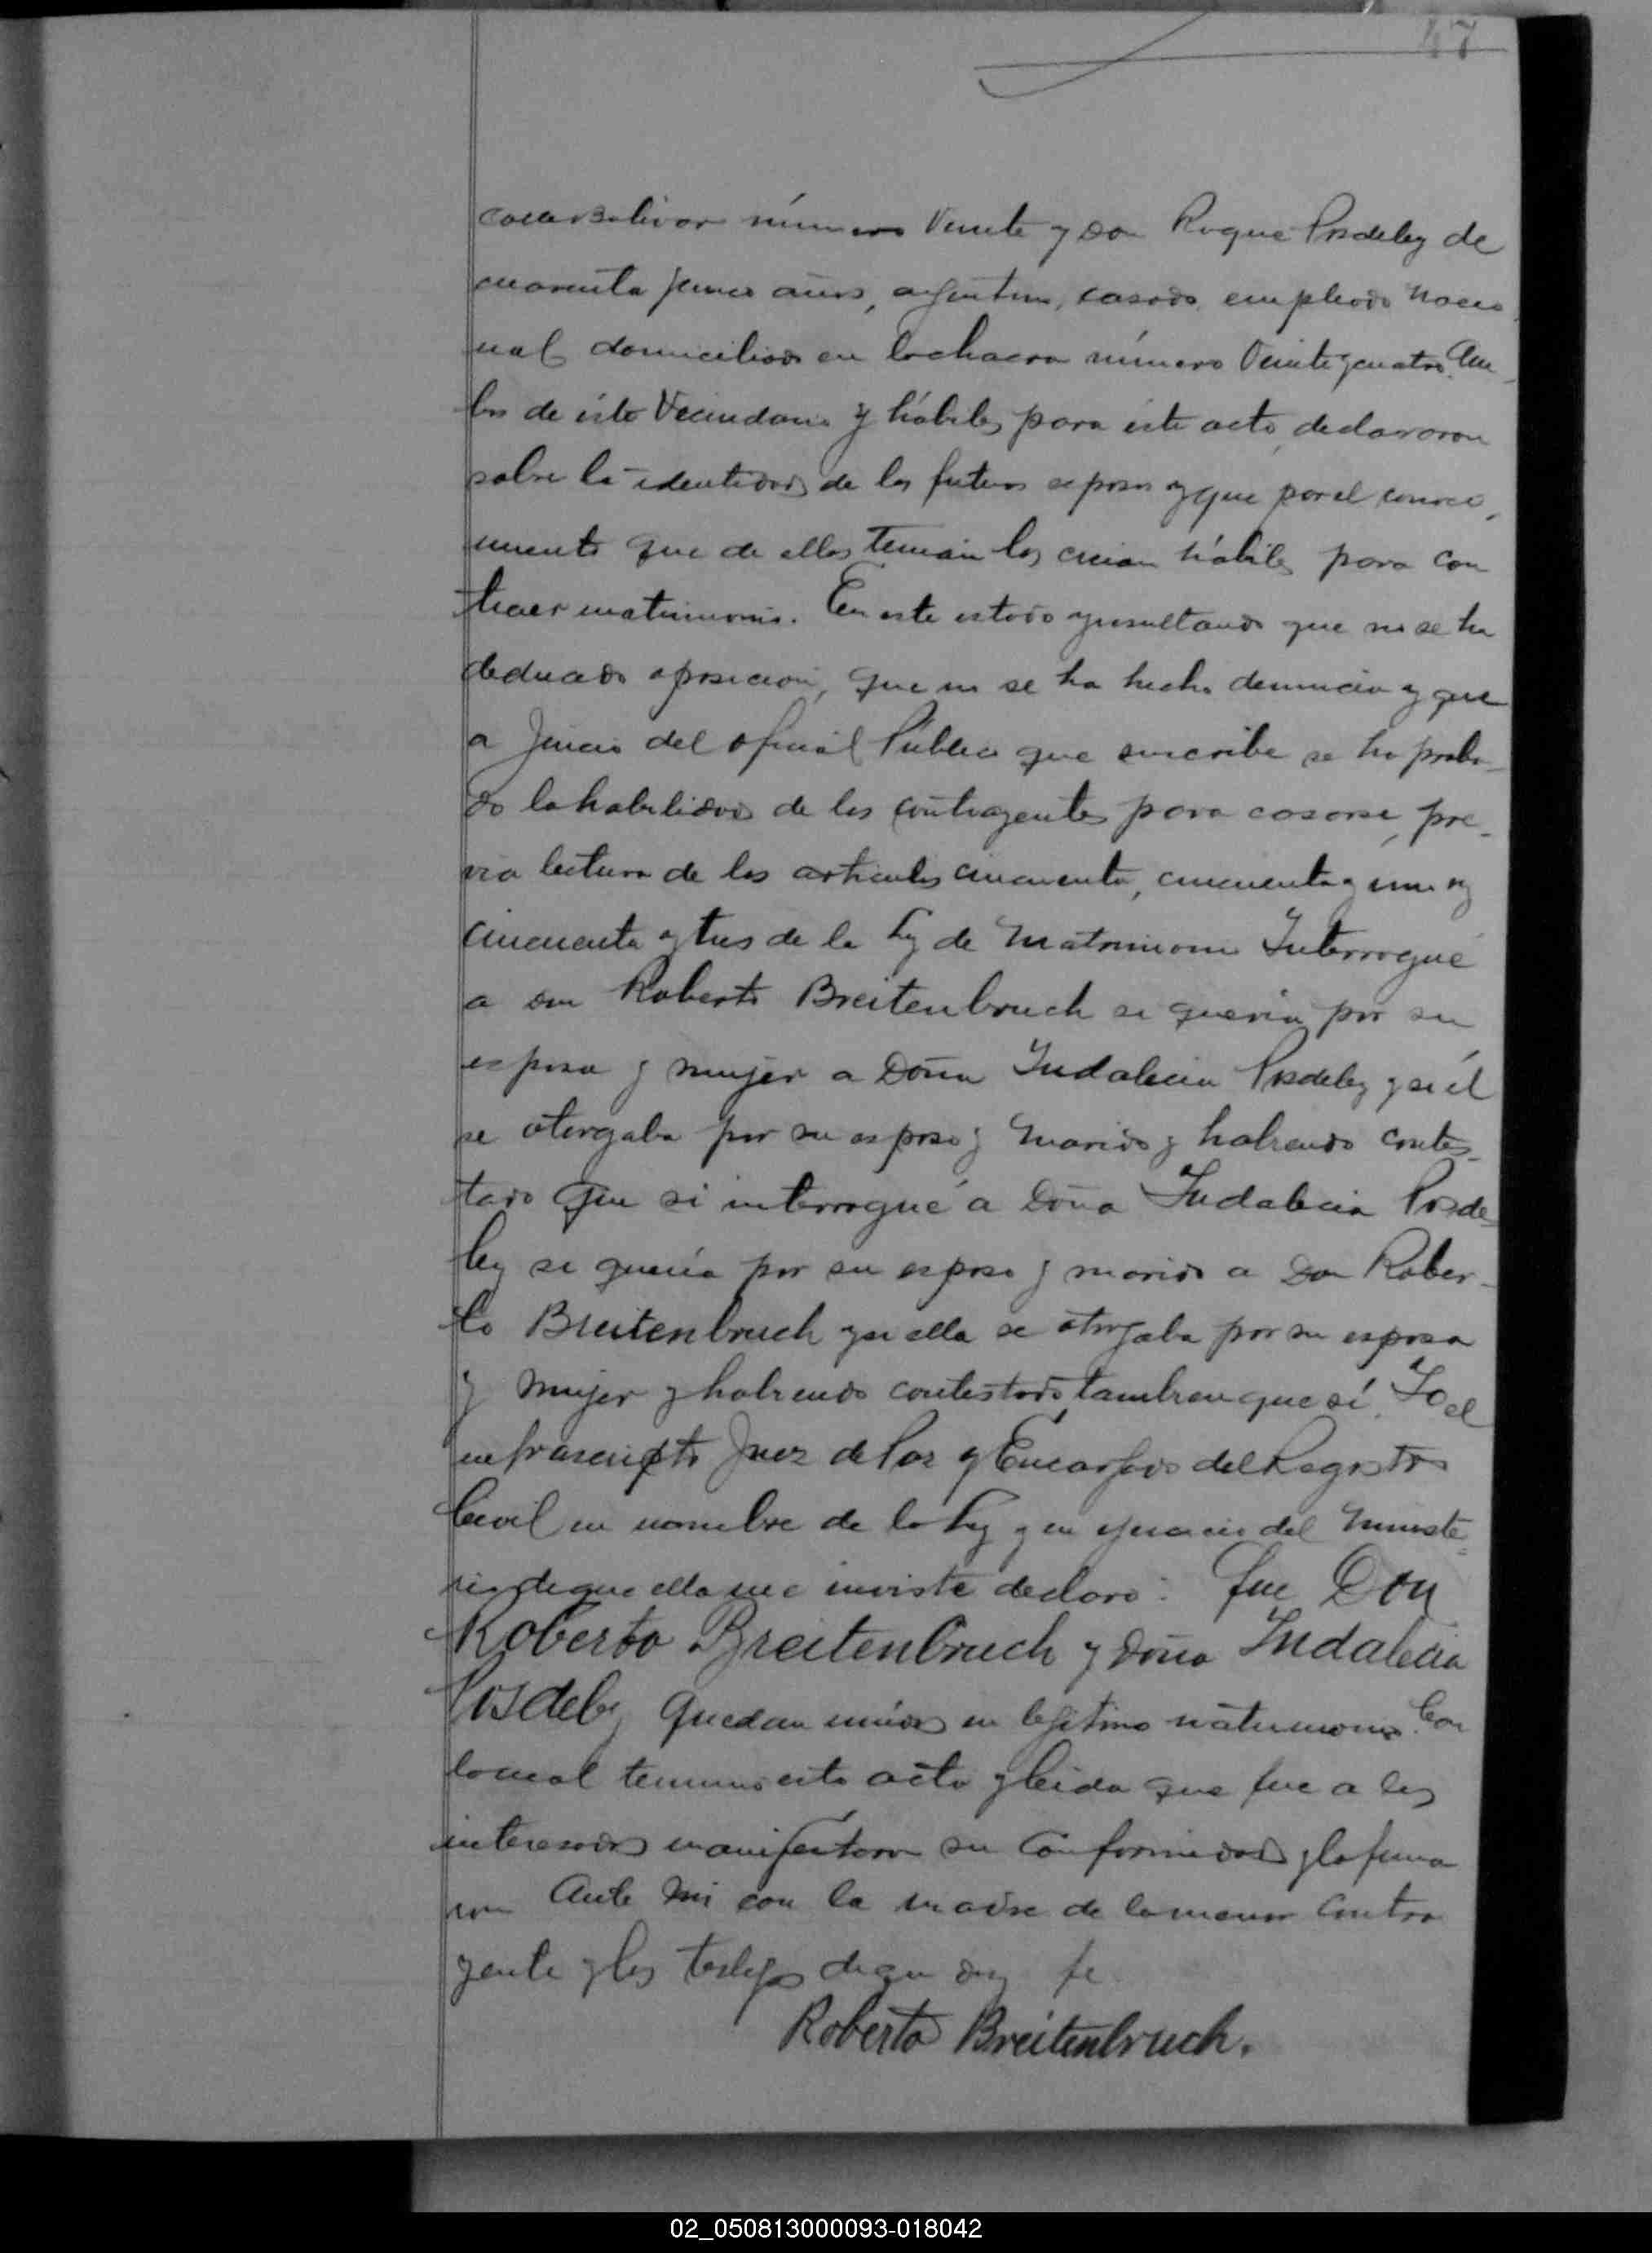 47
calle Bolivar número Veinte y Don Roque Posdeley de
cuarenta y cinco años, argentino, casado, empleado nacio
nal domiciliado en la chacra número Veinte y cuatro. Am
bos de éste Vecindario y hábiles para éste acto, declararon
sobre la identidad de los futuros esposos y que por el conoci
miento que de ellos tenían los creían hábiles para con
traer matrimonio. En este estado y resultando que no se ha
deducido oposición, que no se ha hecho denuncia y que
a Juicio del oficial Público que suscribe se ha proba-
do la habilidad de los contrayentes para casarse, pre-
via lectura de los artículos cincuenta, cincuenta y uno y
cincuenta y tres de la Ley de Matrimonio Interrogué
a don Roberto Breitenbruch si quería por su
esposa y mujer a Doña Indalecia Posdeley y si él
se otorgaba por su esposo y marido y habiendo contes-
tado que si interrogué a Doña Indalecia Posde-
ley si quería por su esposo y marido a Don Rober-
to Breitenbruch y si ella se otorgaba por su esposa
y mujer y habiendo contestado tambien que sí. Yo el
infrascripto Juez de Paz y Encargado del Registro
Civil en nombre de la Ley y en ejercicio del Ministe-
rio de que ella me inviste declaro: Que Don
Roberto Breitenbruch y Doña Indalecia
Posdeley quedan unidos en legítimo matrimonio. Con
lo cual terminó esta acta y leida que fue a los
interesados manifestaron su conformidad y la firma
ron Ante mi con la madre de la menor contra
yente y los testigos de que doy fe
Roberto Breitenbruch.
02_050813000093-018042